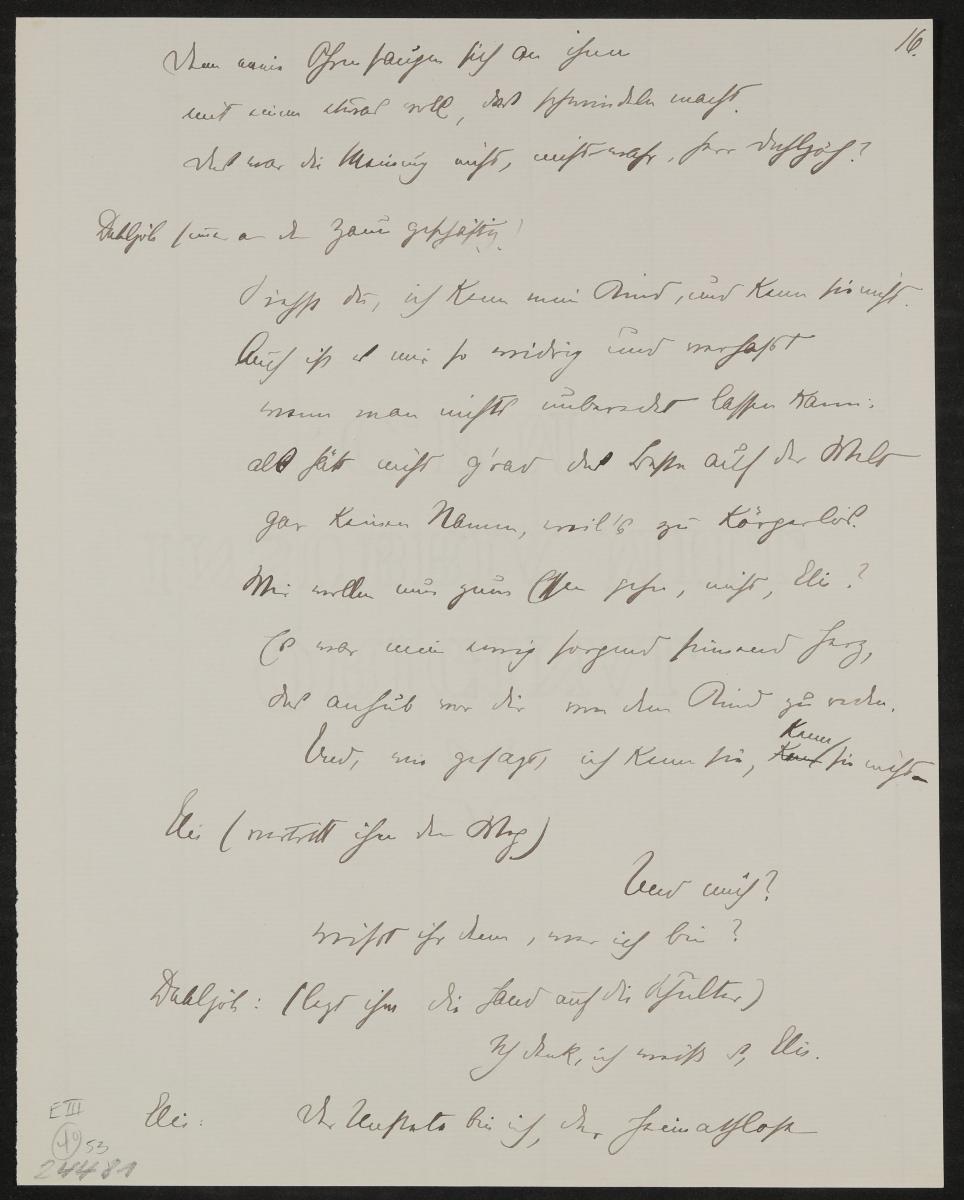 16.
Denn meine Ohren saugen sich an ihnen
mit einem etwas voll, das schwindeln macht.
Das war die Meinung nicht, nicht wahr, Herr Dahlsjöh?
Dahlsjöh (immer an dem Zaun geschäftig)
Siehst du, ich kenn mein Kind, und kenn sie nicht.
Auch ist es mir so widrig und verhaßt
wenn man nichts unberedet lassen kann:
als hätt nicht g'rad das Beste auf der Welt
gar keinen Namen, weil's zu körperlos.
Wir wollen nun zum Essen gehn, nicht, Elis?
Es war mein ewig sorgend sinnend Herz,
das anhub vor dir von dem Kind zu reden.
Und, wie gesagt, ich kenn sie, kenn sie nicht –
Elis (vertritt ihm den Weg)
Und mich?
wißt ihr denn, wer ich bin?
Dahlsjöh: (legt ihm die Hand auf die Schulter)
Ich denk, ich weiß es, Elis.
Elis: Der Unstete bin ich, der Heimathlose
E III
49 53
24481